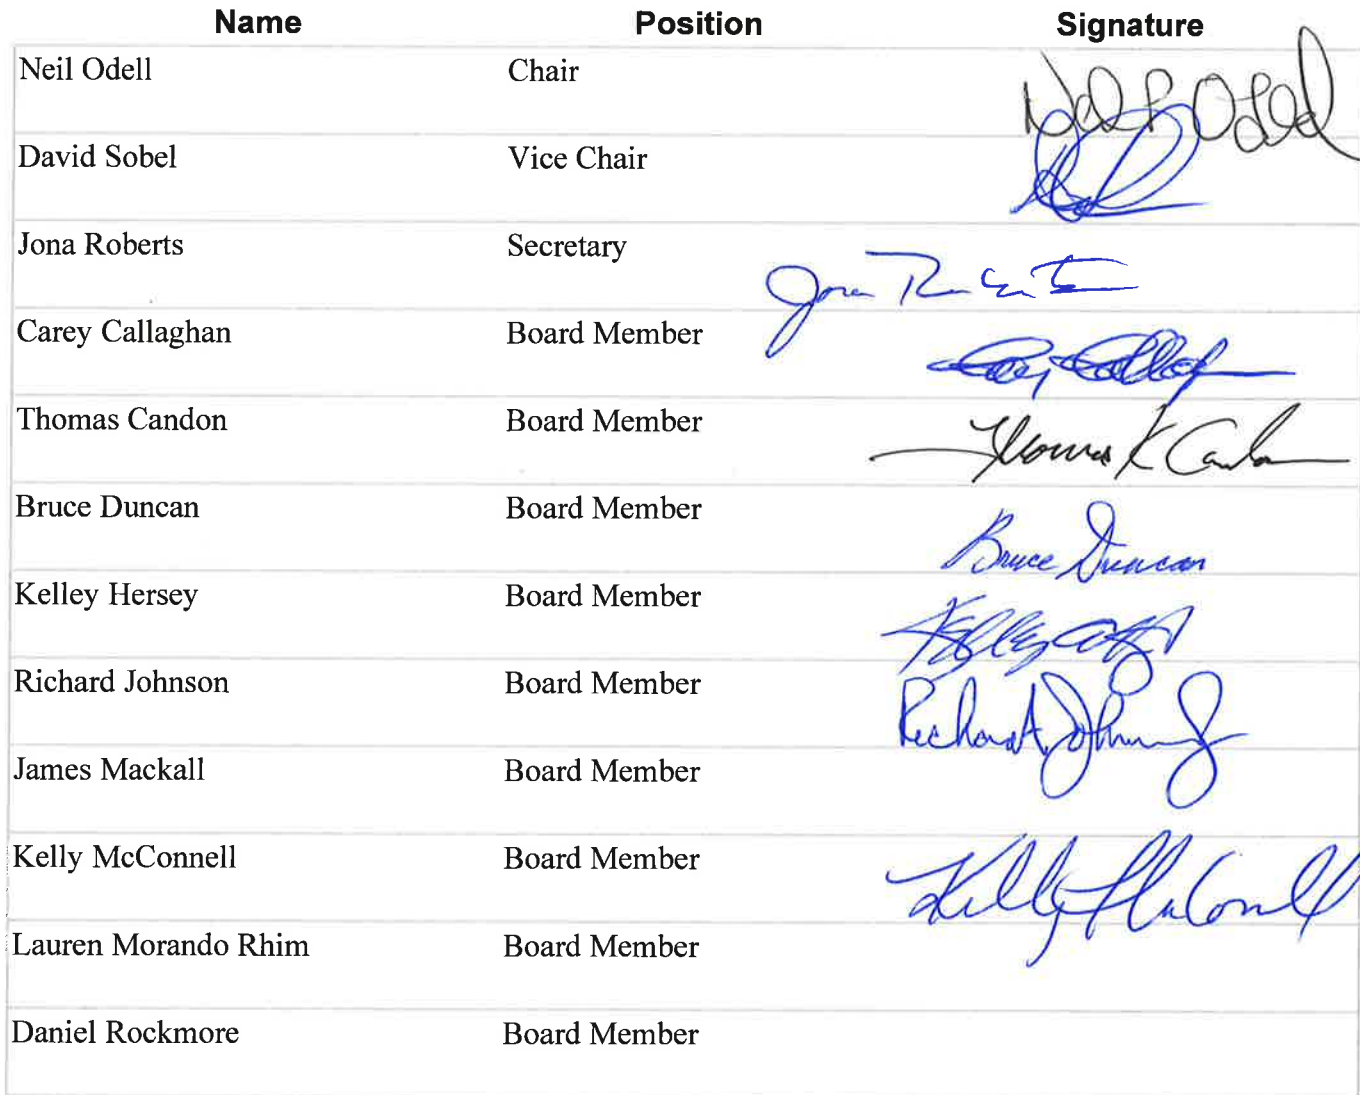 Name Position Signature
Neil Odell Chair Neil F Odell
David Sobel Vice Chair
Jona Roberts Secretary Jona Roberts
Carey Callaghan Board Member Carey Callagh
Thomas Candon Board Member Thomas K Candon
Bruce Duncan Board Member Bruce Duncan
Kelley Hersey Board Member Kelley
Richard Johnson Board Member Richard A. Johnson
James Mackall Board Member
Kelly McConnell Board Member Kelly McConnell
Lauren Morando Rhim Board Member
Daniel Rockmore Board Member